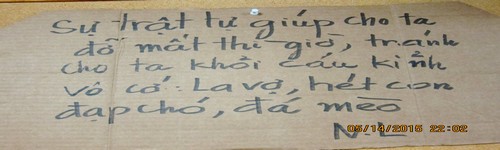 Sự trật tự giúp cho ta
đỡ mất thì giờ, tránh
cho ta khỏi cáu kỉnh
vô cớ: La vợ, hét con
đạp chó, đá mèo
N.L
05/14/2015 22:02